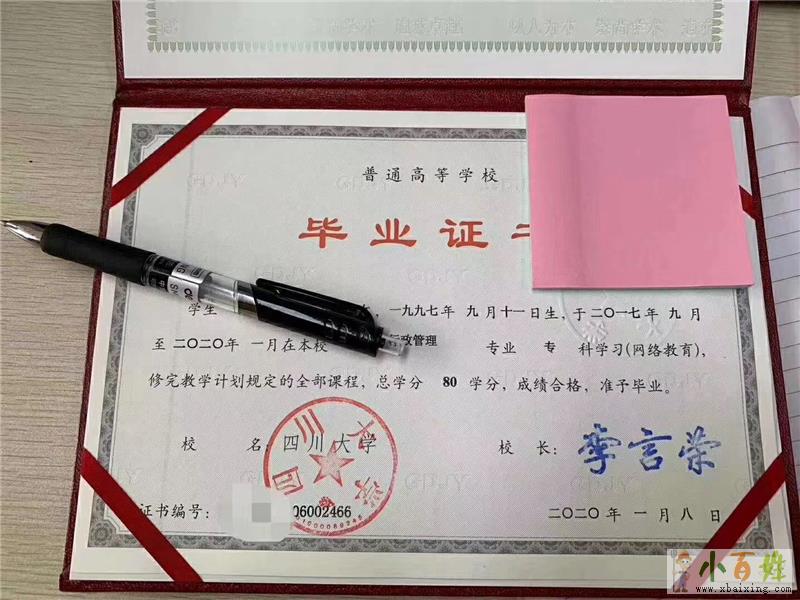 普通高等学校
毕业证
学生 一九九七年 九月十一日生,于二〇一七年 九月
至二〇二〇年 一月在本校 行政管理 专业 专 科学习(网络教育),
修完教学计划规定的全部课程,总学分 80 学分,成绩合格,准予毕业。
校 名: 四川大学 校 长: 李言荣
证书编号: 06002466 二〇二〇年 一月八日
小百姓
www.xbaixing.com